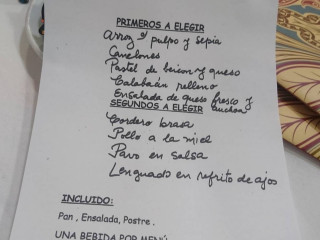 PRIMEROS A ELEGIR
Arroz c/ pulpo y sepia
Canelones
Pastel de beicon y queso
Calabacín relleno
Ensalada de queso fresco y
anchoa
SEGUNDOS A ELEGIR
Cordero brasa
Pollo a la miel
Pavo en salsa
Lenguado en refrito de ajos
INCLUIDO:
Pan, Ensalada, Postre.
UNA BEBIDA POR MENÚ